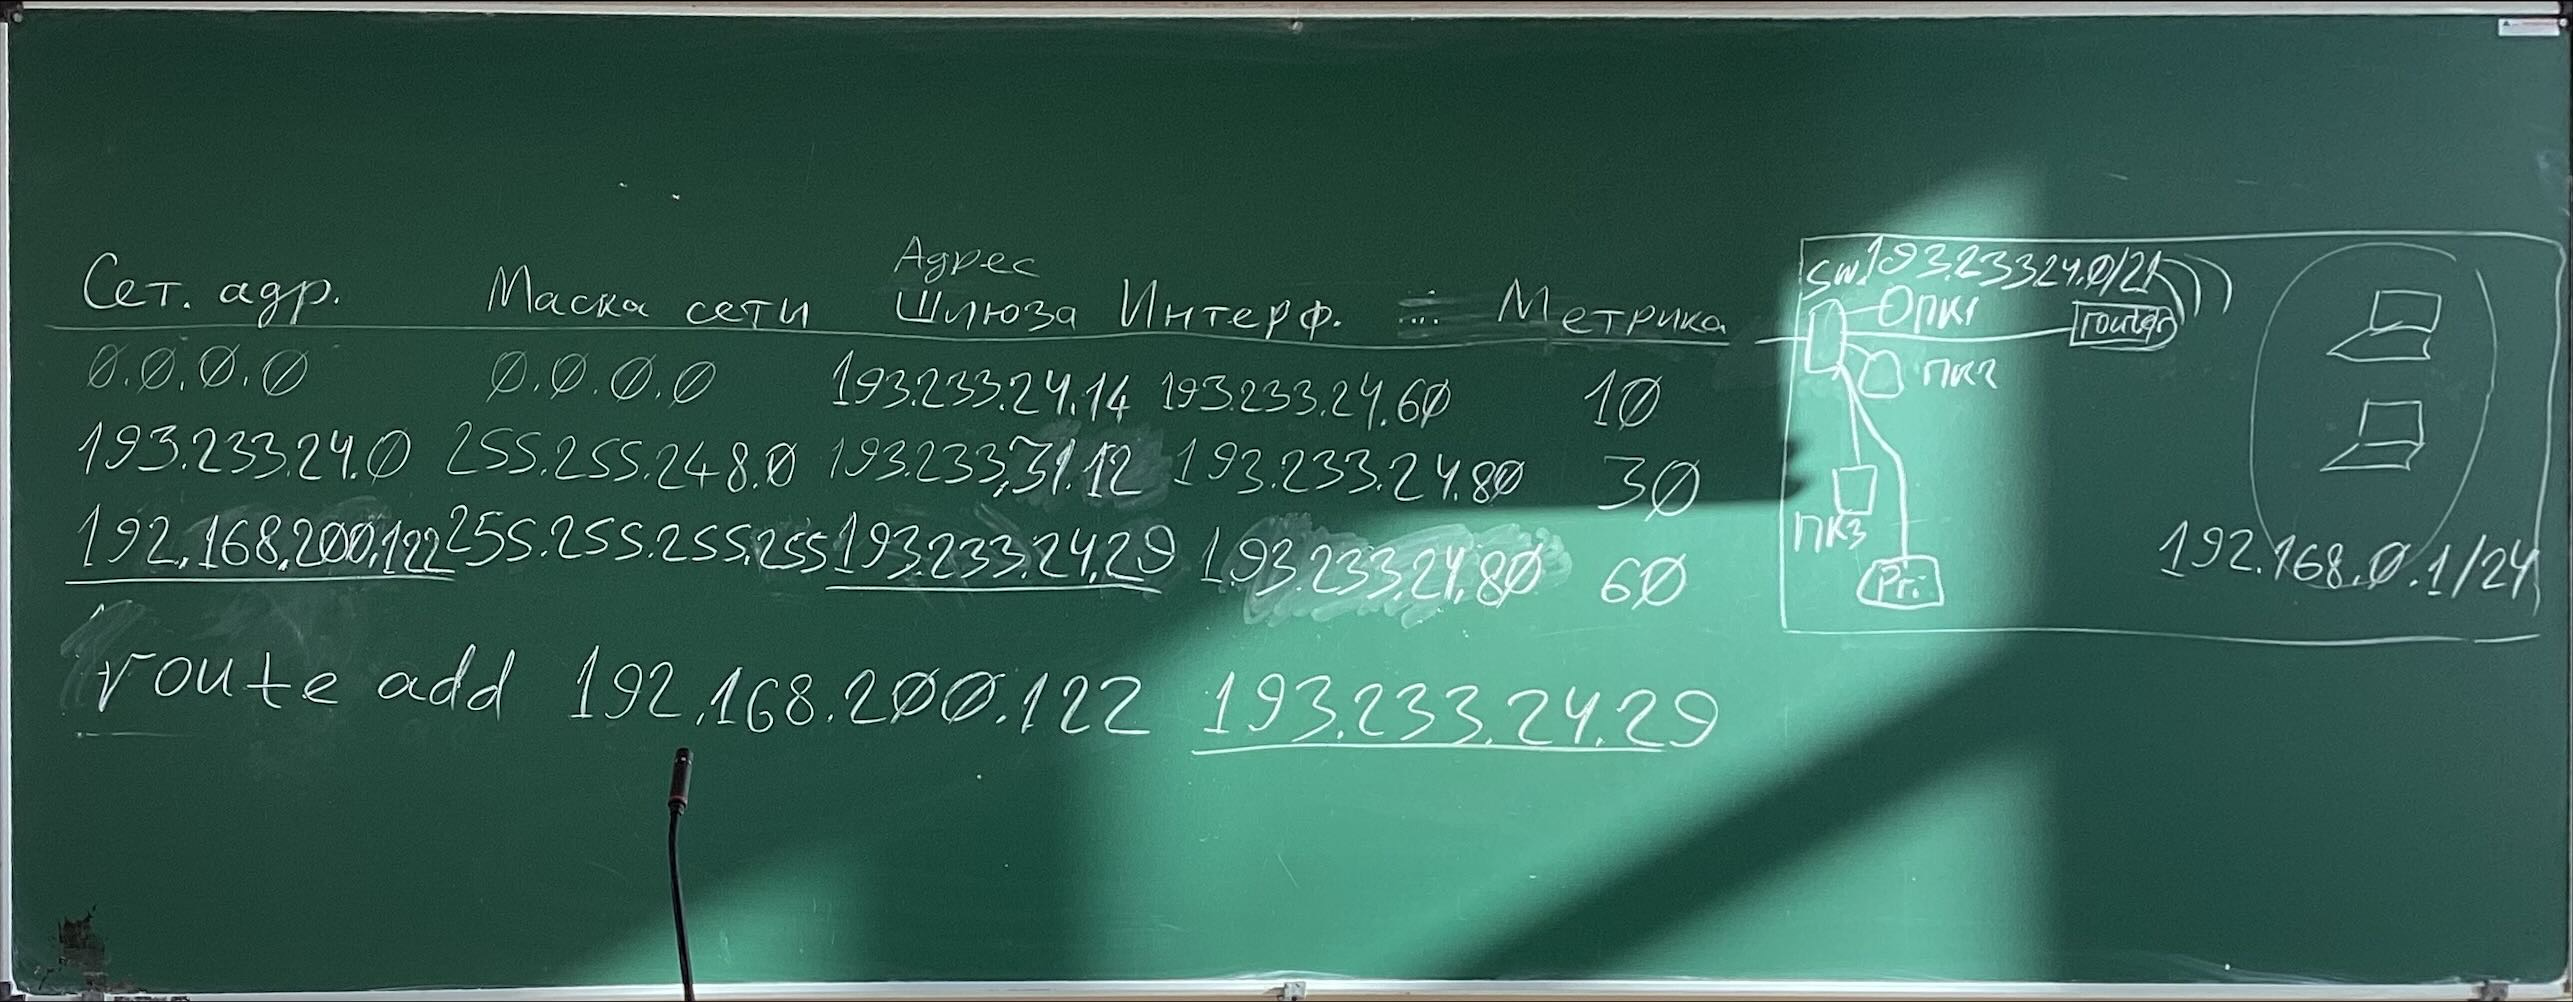 Сет. адр. Маска сети Адрес Шлюза Интерф. ... Метрика
0.0.0.0 0.0.0.0 193.233.24.14 193.233.24.60 10
193.233.24.0 255.255.248.0 193.233.31.12 193.233.24.80 30
192.168.200.122 255.255.255.255 193.233.24.29 193.233.24.80 60
route add 192.168.200.122 193.233.24.29
193.233.24.0/21
SW.
ПК1
router
ПК2
ПК3
Pr.
192.168.0.1/24